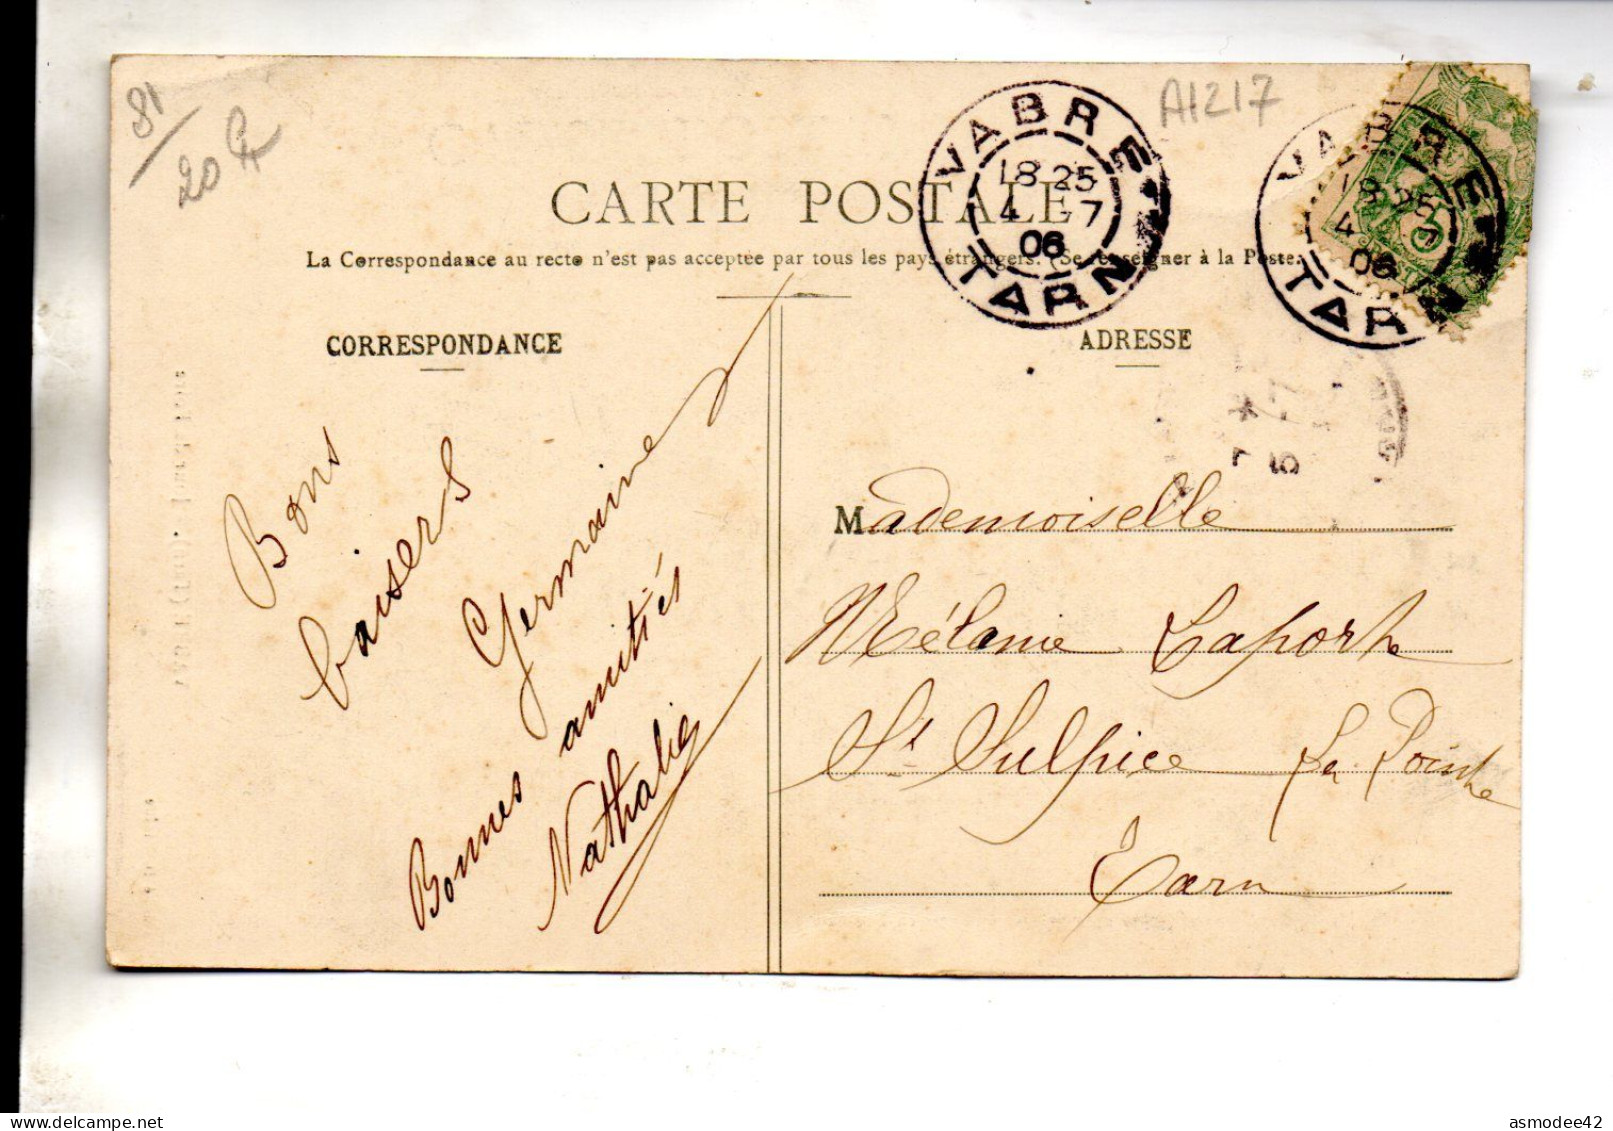 81
20 Fr
A1217
VABRE
18 25
4 -7
06
TARN
VABRE
18 25
4 -7
06
TARN
5
CARTE POSTALE
La Correspondance au recto n'est pas acceptée par tous les pays étrangers. (Se renseigner à la Poste.)
CORRESPONDANCE
ADRESSE
7 *
5 -7
Bons
baisers
Germaine
Bonnes amitiés
Nathalie
Mademoiselle
Mélanie Laporte
St Sulpice La Pointe
Tarn
asmodee42